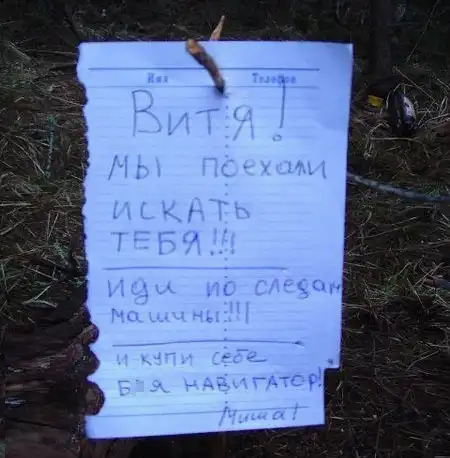 Имя Телефон
Витя!
мы поехали
искать
тебя!!!
иди по следам
машины!!!
и купи себе
б я навигатор!
Миша!